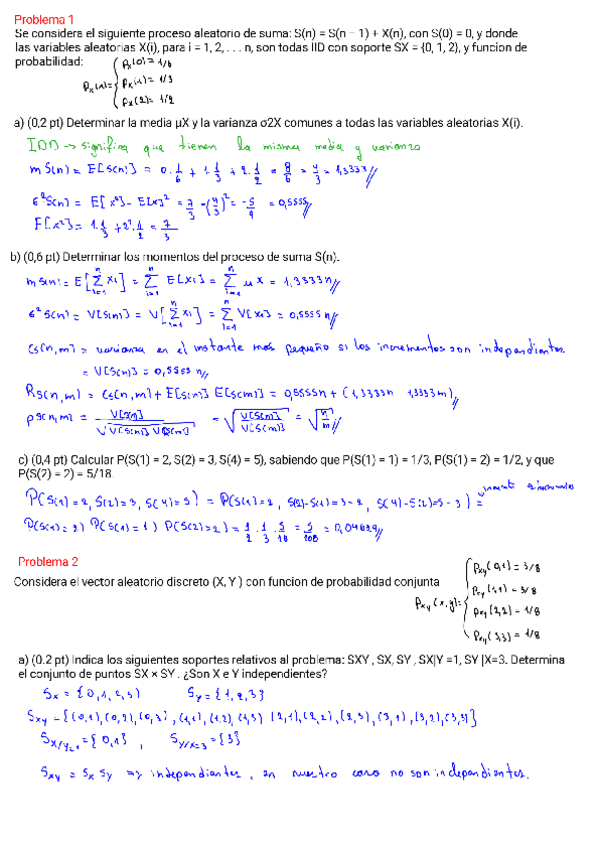 Problema 1
Se considera el siguiente proceso aleatorio de suma: S(n) = S(n − 1) + X(n), con S(0) = 0, y donde
las variables aleatorias X(i), para i = 1, 2, . . . n, son todas IID con soporte SX = {0, 1, 2}, y funcion de
probabilidad:
Px(x)= { Px(0)= 1/6
Px(1)= 1/3
Px(2)= 1/2
a) (0,2 pt) Determinar la media µX y la varianza σ2X comunes a todas las variables aleatorias X(i).
IDD → significa que tienen la misma media y varianza
mS(n) = E[S(n)] = 0·1/6 + 1·1/3 + 2·1/2 = 8/6 = 4/3 = 1,3333//
б²S(n) = E[x²] - E[x]² = 7/3 - (4/3)² = -5/9 = 0,5555//
E[x²] = 1·1/3 + 2²·1/2 = 7/3
b) (0,6 pt) Determinar los momentos del proceso de suma S(n).
mS(n) = E[∑ᵢ₌₁ⁿ Xi] = ∑ᵢ₌₁ⁿ E[Xi] = ∑ᵢ₌₁ⁿ µx = 1,3333n//
б²S(n) = V[S(n)] = V[∑ᵢ₌₁ⁿ Xi] = ∑ᵢ₌₁ⁿ V[Xi] = 0,5555n//
Cs(n,m) = varianza en el instante más pequeño si los incrementos son independientes
= V[S(n)] = 0,5555 n//
Rs(n,m) = Cs(n,m) + E[S(n)] E[S(m)] = 0,5555n + (1,3333n · 1,3333m)//
ρs(n,m) = V[S(n)] / √V[S(n)] V[S(m)] = √V[S(n)]/V[S(m)] = √n/m//
c) (0,4 pt) Calcular P(S(1) = 2, S(2) = 3, S(4) = 5), sabiendo que P(S(1) = 1) = 1/3, P(S(1) = 2) = 1/2, y que
P(S(2) = 2) = 5/18.
P(S(1)=2, S(2)=3, S(4)=5) = P(S(1)=2, S(2)-S(1)=3-2, S(4)-S(2)=5-3) =
P(S(1)=2) P(S(1)=1) P(S(2)=2) = 1/2 · 1/3 · 5/18 = 5/108 = 0,04629//
Problema 2
Considera el vector aleatorio discreto (X, Y ) con funcion de probabilidad conjunta
Pxy(x,y)= { Pxy(0,1) = 3/8
Pxy(1,1) = 3/8
Pxy(2,2) = 1/8
Pxy(3,3) = 1/8
a) (0.2 pt) Indica los siguientes soportes relativos al problema: SXY , SX, SY , SX|Y =1, SY |X=3. Determina
el conjunto de puntos SX × SY . ¿Son X e Y independientes?
Sx = {0,1,2,3} Sy = {1,2,3}
Sxy = {(0,1), (0,2), (0,3), (1,1), (1,2), (1,3), (2,1), (2,2), (2,3), (3,1), (3,2), (3,3)}
Sx/y=1 = {0,1} , Sy/x=3 = {3}
Sxy = Sx Sy => independientes, en nuestro caso no son independientes.